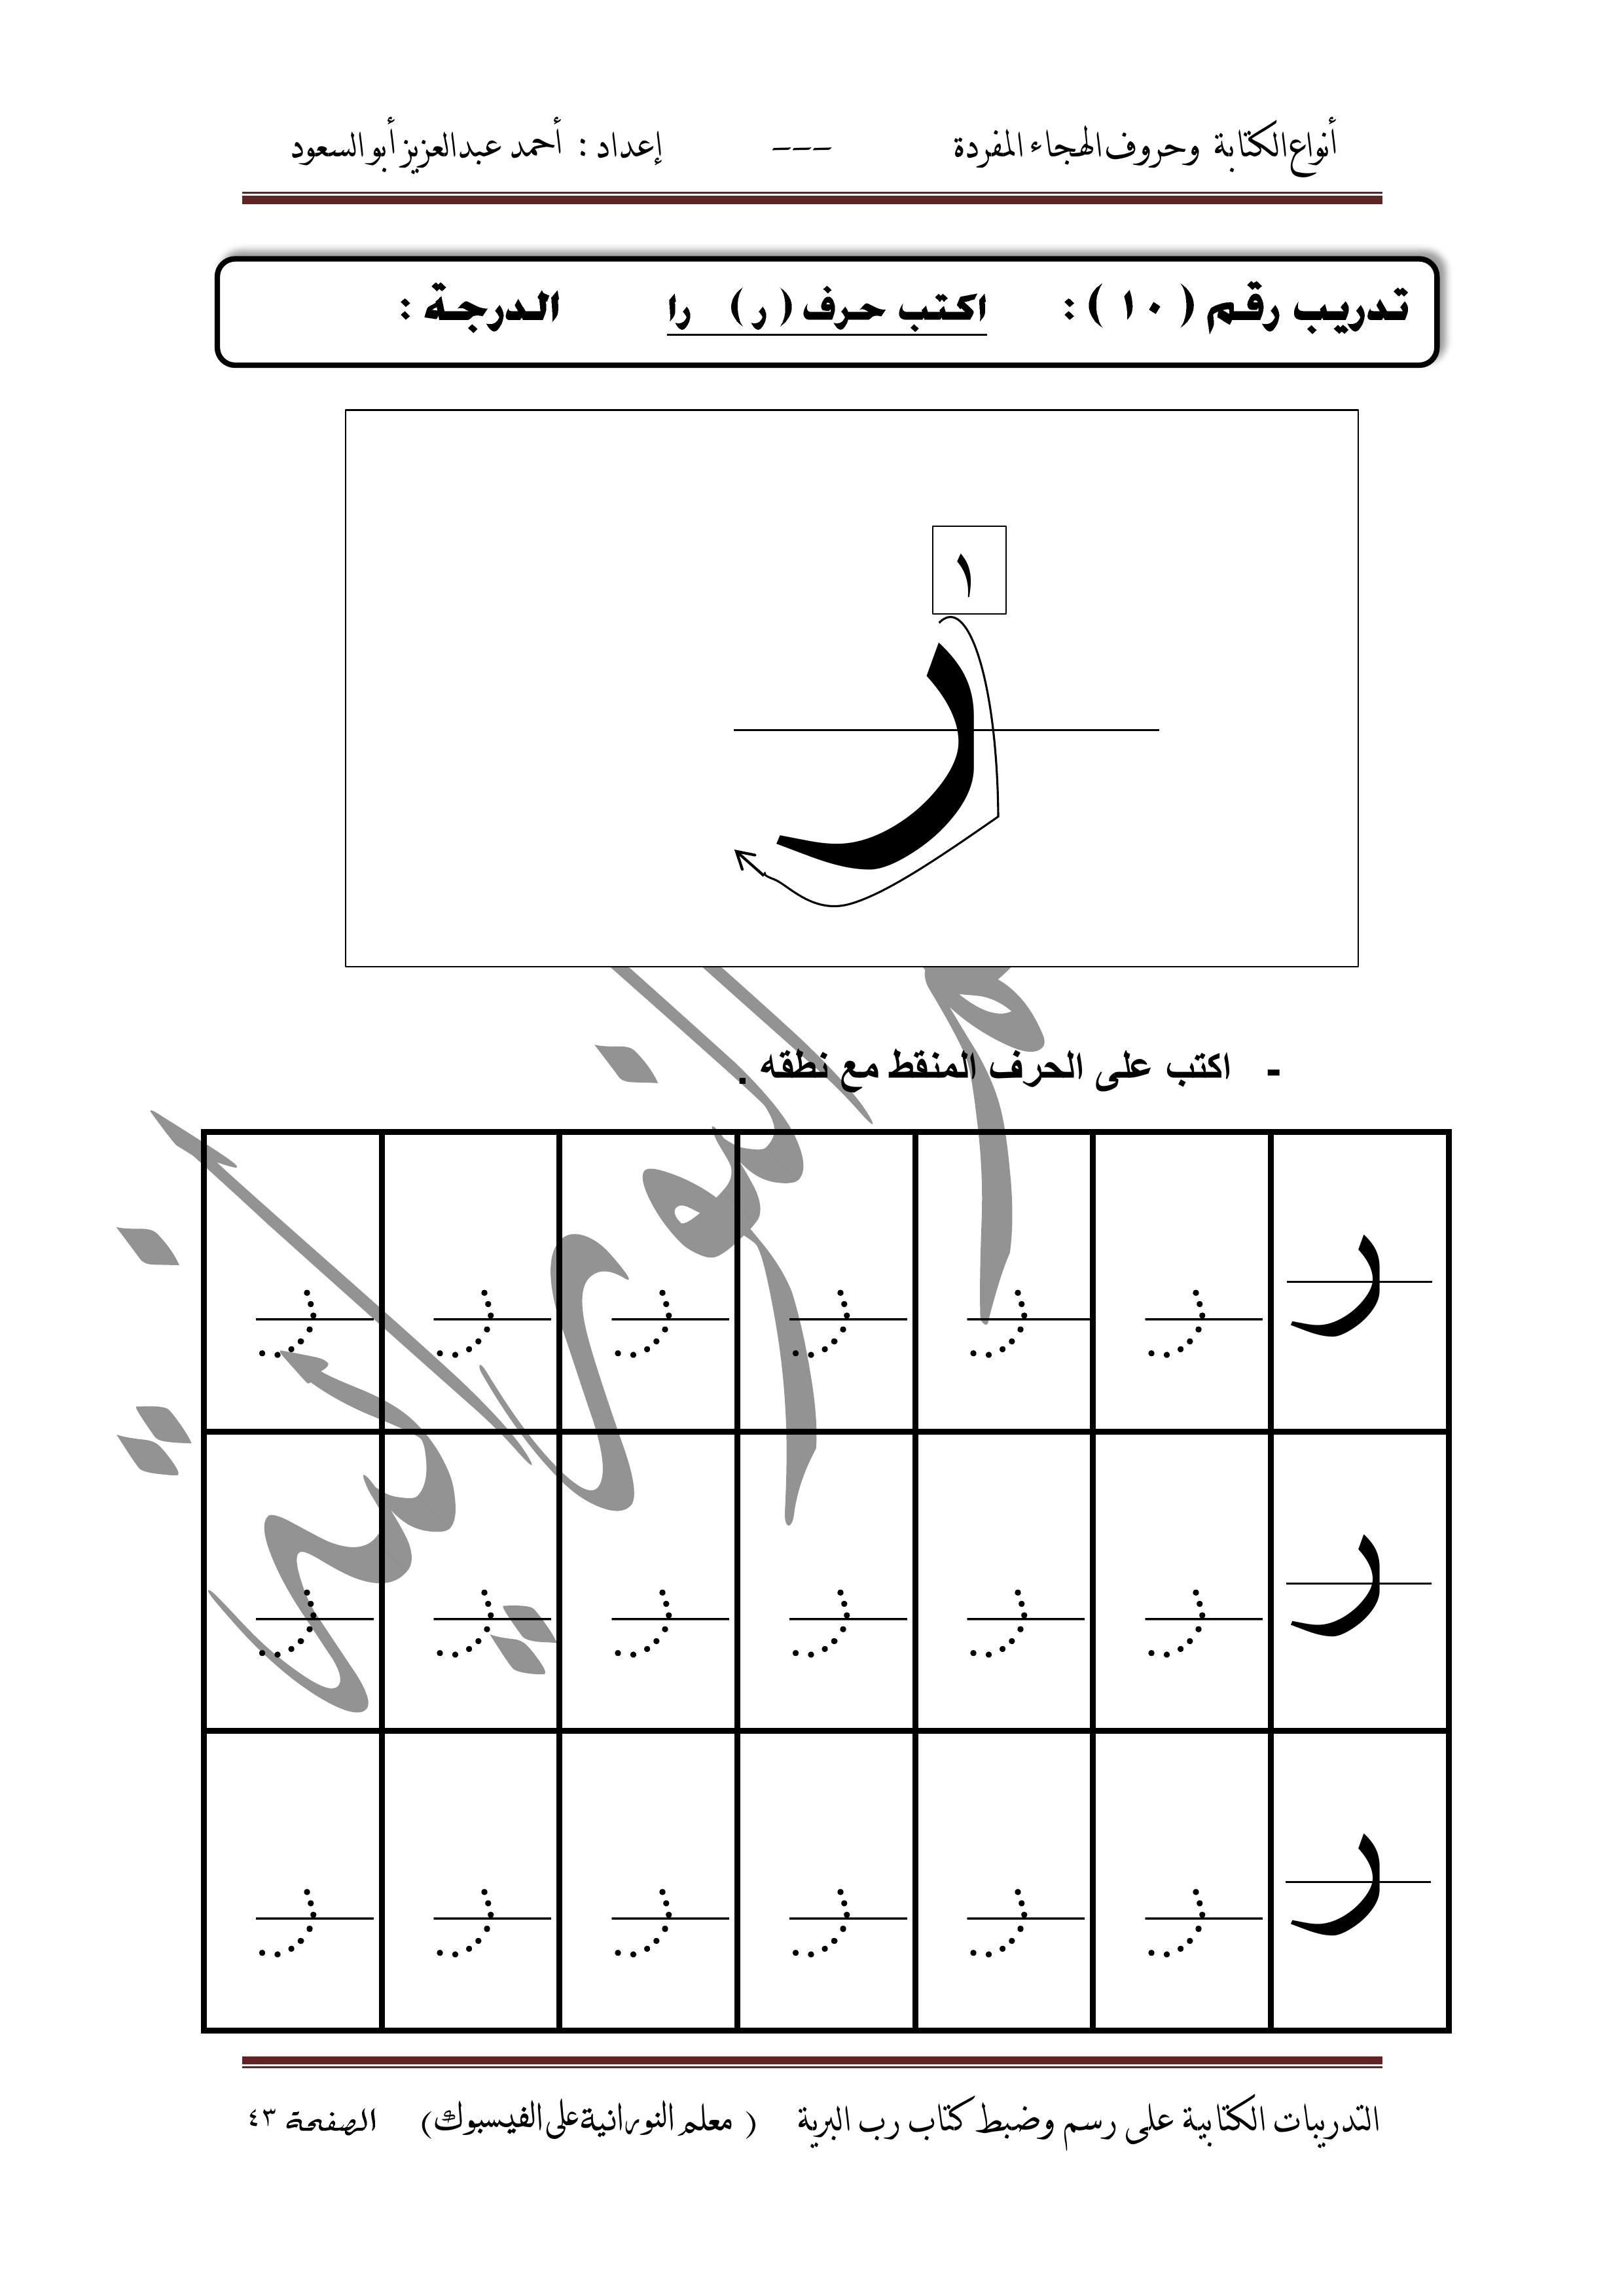 أنواع الكتابة وحروف الهجاء المفردة --- إعداد : أحمد عبدالعزيز أبو السعود
تدريب رقم ( ١٠ ) : اكتب حرف ( ر ) را الدرجة :
١
ر
- اكتب على الحرف المنقط مع نطقه .
ر ر ر ر ر ر ر
ر ر ر ر ر ر ر
ر ر ر ر ر ر ر
التدريبات الكتابية على رسم وضبط كتاب رب البرية ( معلم النورانية على الفيسبوك) الصفحة ٤٣